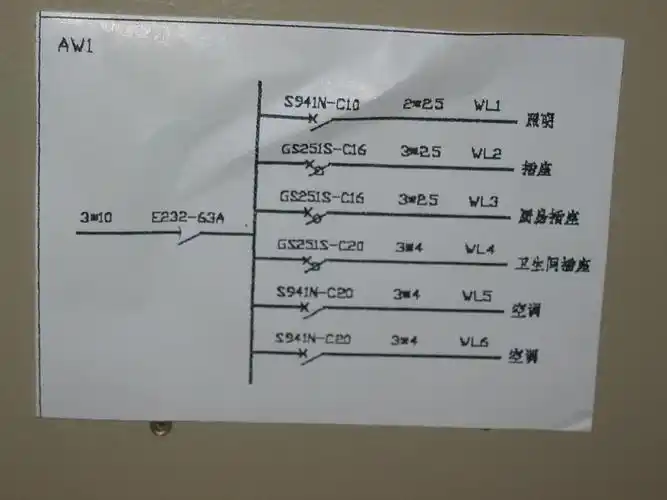 AW1
S941N-C10 2*2.5 WL1 照明
GS251S-C16 3*2.5 WL2 插座
GS251S-C16 3*2.5 WL3 厨房插座
3*10 E232-63A
GS251S-C20 3*4 WL4 卫生间插座
S941N-C20 3*4 WL5 空调
S941N-C20 3*4 WL6 空调